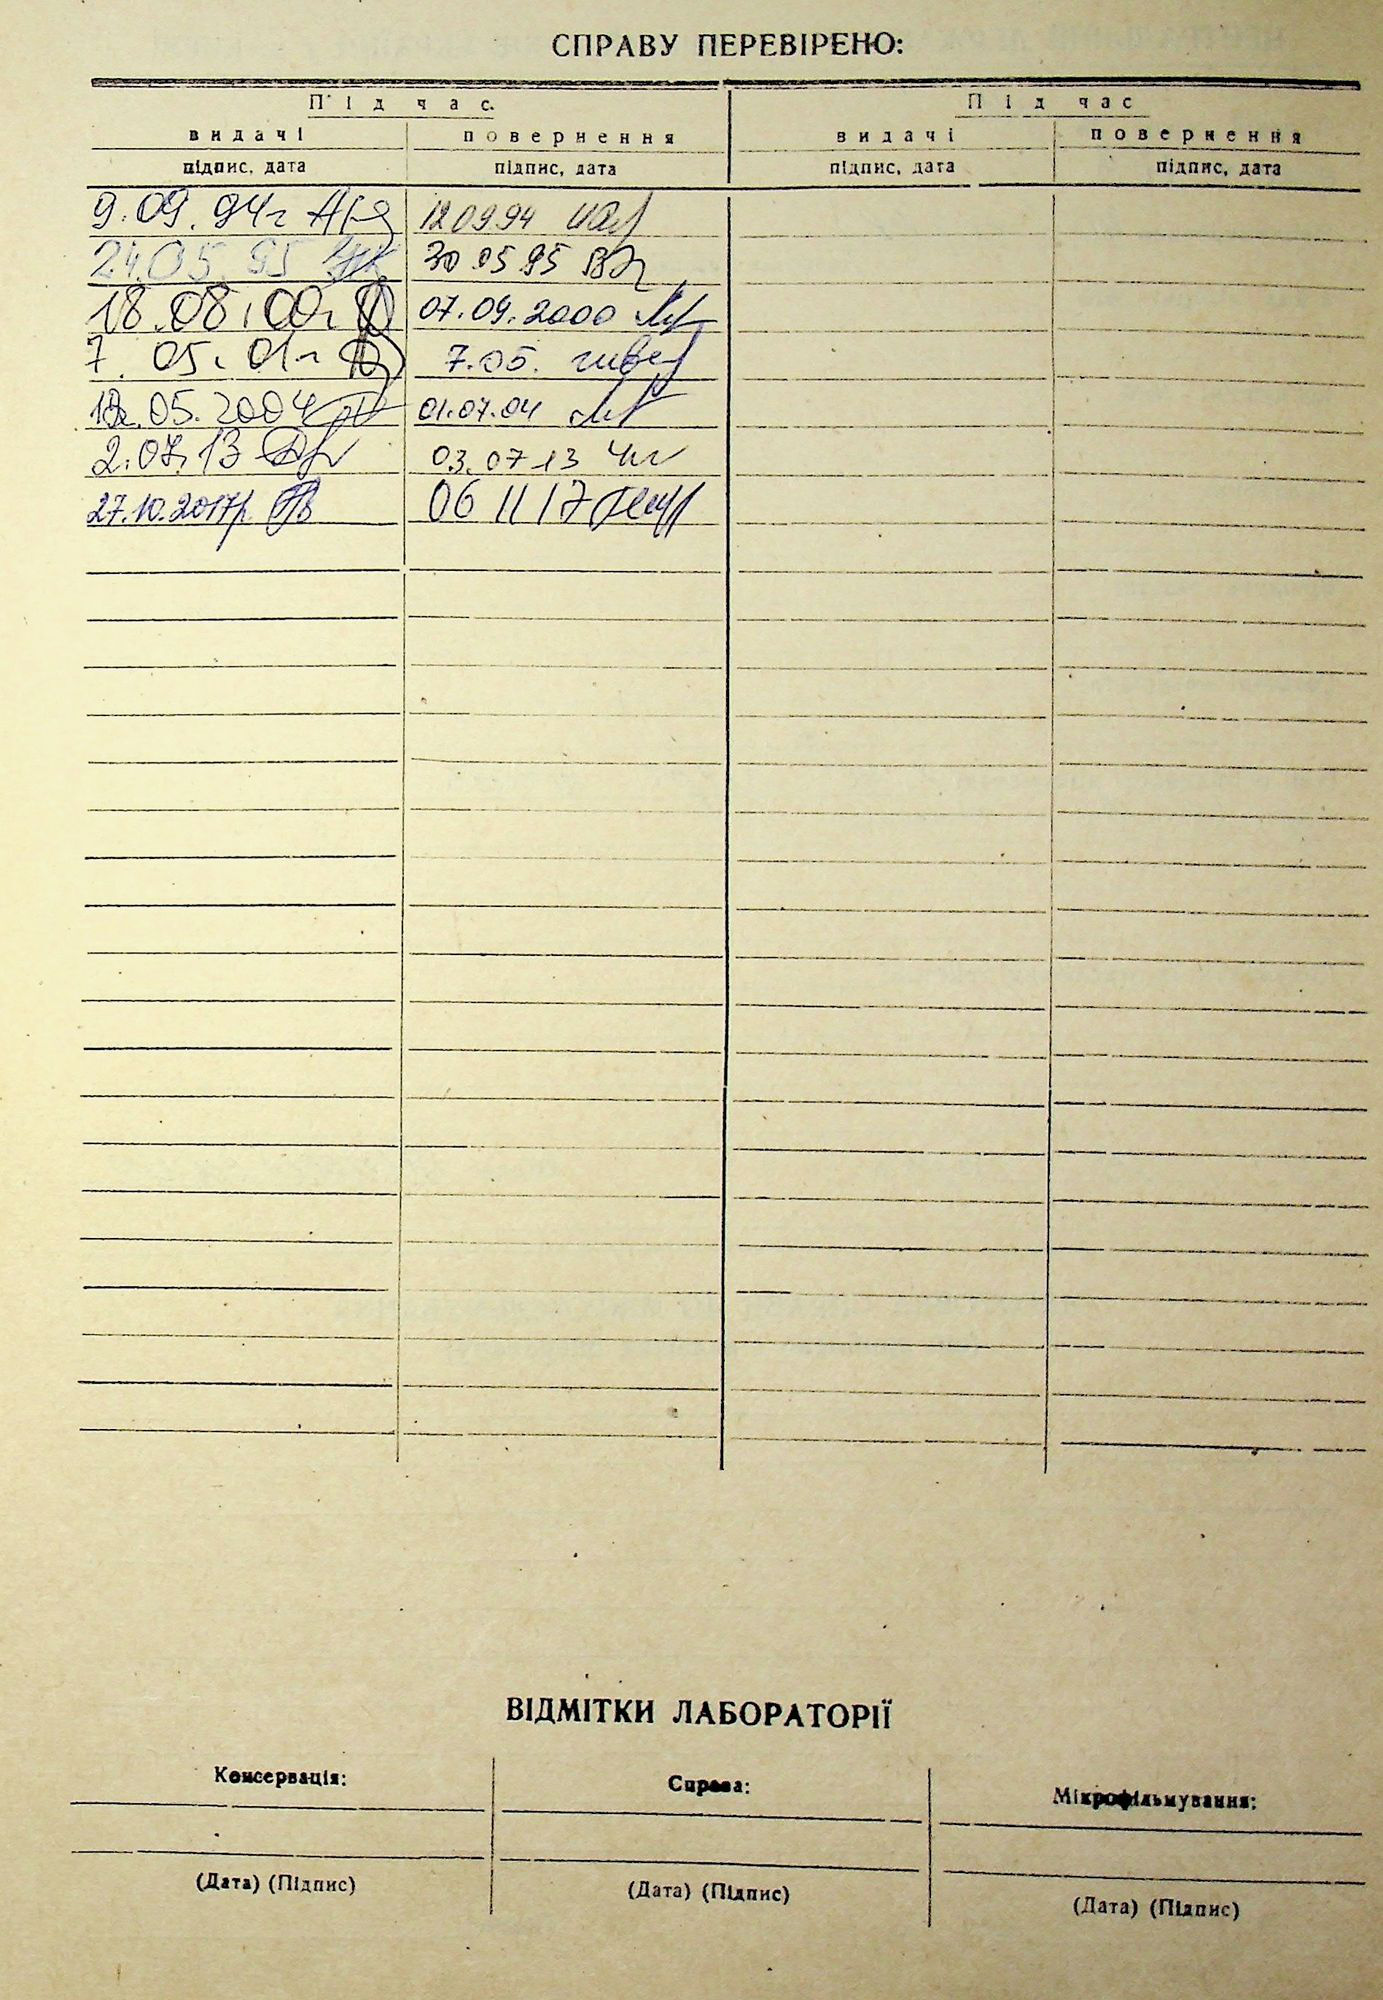 СПРАВУ ПЕРЕВІРЕНО:
Під час. Під час
видачі повернення видачі повернення
підпис, дата підпис, дата підпис, дата підпис, дата
9.09.94г 12 09 94
24.05.95 30 05 95
18.08.00г 07.09.2000
7.05.01г 7.05.
.05.2004 01.07.04
2.07.13 03.07 13
27.10.2017р. 06 11 17
ВІДМІТКИ ЛАБОРАТОРІЇ
Консервація: Справа: Мікрофільмування:
(Дата) (Підпис) (Дата) (Підпис) (Дата) (Підпис)